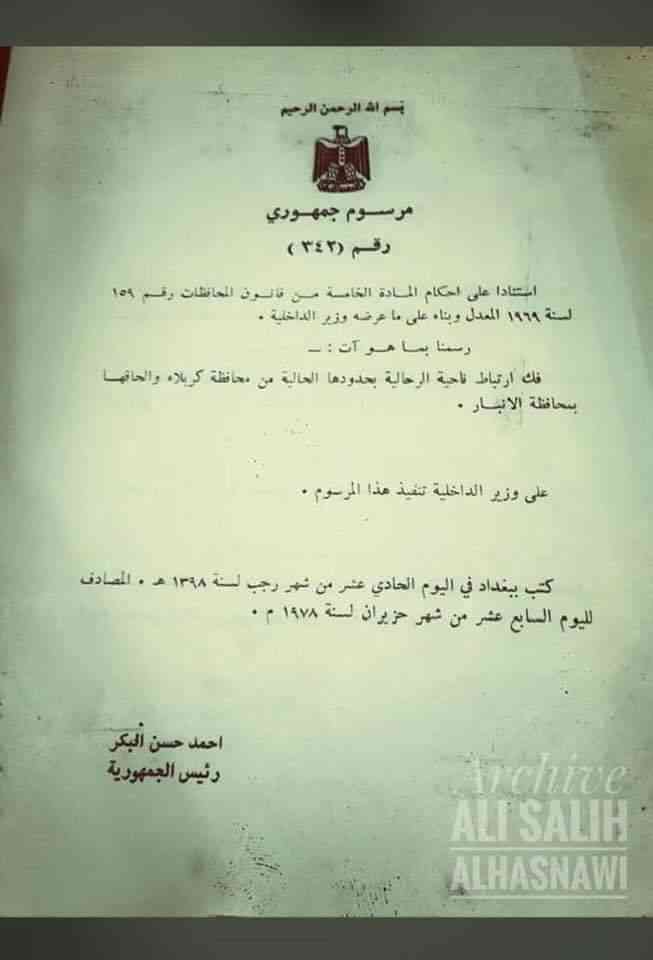 بسم الله الرحمن الرحيم
مرسوم جمهوري
رقم (٣٤٢)
استنادا على احكام المادة الخامسة من قانون المحافظات رقم ١٥٩
لسنة ١٩٦٩ المعدل وبناء على ما عرضه وزير الداخلية .
رسمنا بما هو آت : ــ
فك ارتباط ناحية الرحالية بحدودها الحالية من محافظة كربلاء والحاقها
بمحافظة الانبار .
على وزير الداخلية تنفيذ هذا المرسوم .
كتب ببغداد في اليوم الحادي عشر من شهر رجب لسنة ١٣٩٨ هـ . المصادف
لليوم السابع عشر من شهر حزيران لسنة ١٩٧٨ م .
احمد حسن البكر
رئيس الجمهورية
Archive
ALI SALIH
ALHASNAWI